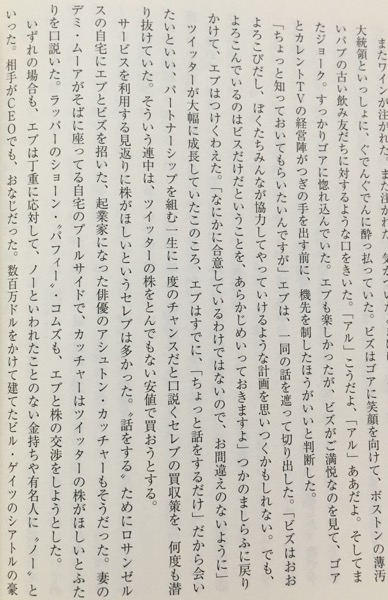 またワインが注がれた。また注がれた。気がつ
大統領といっしょに、ぐでんぐでんに酔っ払っていた。ビズはゴアに笑顔を向けて、ボストンの薄汚
いパブの古い飲み友だちに対するような口をきいた。「アル」こうだよ、「アル」ああだよ。そしてま
たジョーク。すっかりゴアに惚れ込んでいた。エブも楽しかったが、ビズがご満悦なのを見て、ゴア
とカレントTVの経営陣がつぎの手を出す前に、機先を制したほうがいいと判断した。
「ちょっと知っておいてもらいたいんですが」エブは、一同の話を遮って切り出した。「ビズはおお
よろこびだし、ぼくたちみんなが協力してやっていけるような計画を思いつくかもしれない。でも、
よろこんでいるのはビズだけだということを、あらかじめいっておきますよ」つかのましらふに戻り
かけて、エブはつけくわえた。「なにかに合意しているわけではないので、お間違えのないように」
ツイッターが大幅に成長していたこのころ、エブはすでに、「ちょっと話をするだけ」だから会い
たいといい、パートナーシップを組む一生に一度のチャンスだと口説くセレブの買収策を、何度も潜
り抜けていた。そういう連中は、ツイッターの株をとんでもない安値で買おうとする。
サービスを利用する見返りに株がほしいというセレブは多かった。〝話をする〟ためにロサンゼル
スの自宅にエブとビズを招いた、起業家になった俳優のアシュトン・カッチャーもそうだった。妻の
デミ・ムーアがそばに座ってる自宅のプールサイドで、カッチャーはツイッターの株がほしいとふた
りを口説いた。ラッパーのショーン・〝パフィー〟・コムズも、エブと株の交渉をしようとした。
いずれの場合も、エブは丁重に応対して、ノーといわれたことのない金持ちや有名人に〝ノー〟と
いった。相手がCEOでも、おなじだった。数百万ドルをかけて建てたビル・ゲイツのシアトルの豪